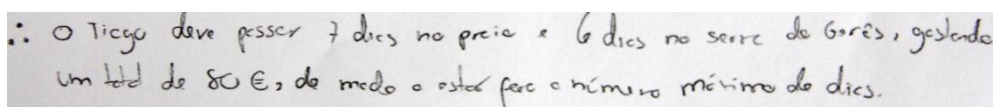 ∴ O Tiago deve passar 7 dias na praia e 6 dias na serra do Gerês, gastando
um total de 80 €, de modo a estar fora o número máximo de dias.